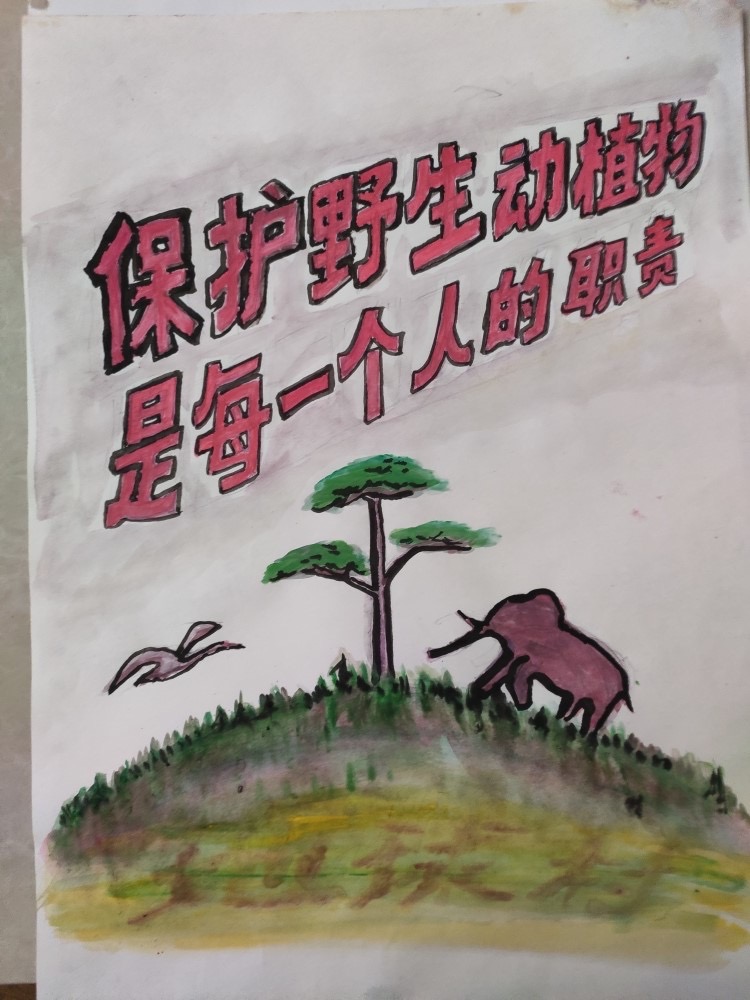 保护野生动植物
是每一个人的职责